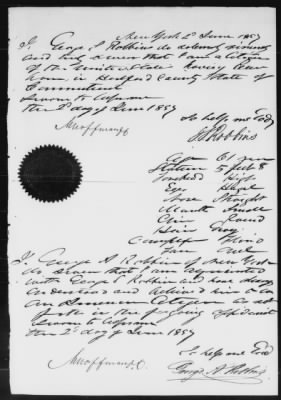 New York 2d June 1857
I, George S Robbins do solemnly
and truly swear that I am a citizen
of the United States having been
born in Hartford County State of
Connecticut
Sworn to before me
the 2d day of June 1857
So help me God
G S Robbins
Age 61 years
Stature 5 feet 8
Forehead High
Eyes Hazel
Nose Straight
Mouth Small
Chin Round
Hair Gray
Complex
Face Oval
I, George A Robbins of New York
do swear that I am acquainted
with George S Robbins and have always
understood and believed him to be
an American Citizen as set
forth in the foregoing affidavit
Sworn to before me
the 2d day of June 1857
So help me God
George A Robbins